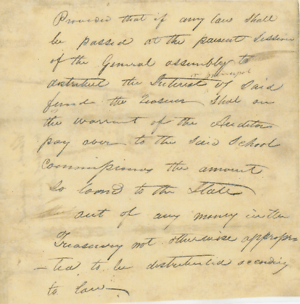 Provided that if any law shall
be passed at the present Session
of the General assembly to
distribute the Interest or principal of said
fund the Treasurer shall on
the warrant of the Auditor
pay over to the said School
commissioners the amount
So loand to the State
out of any money in the
Treasury not otherwise appropria
-ted to be distributed according
to law